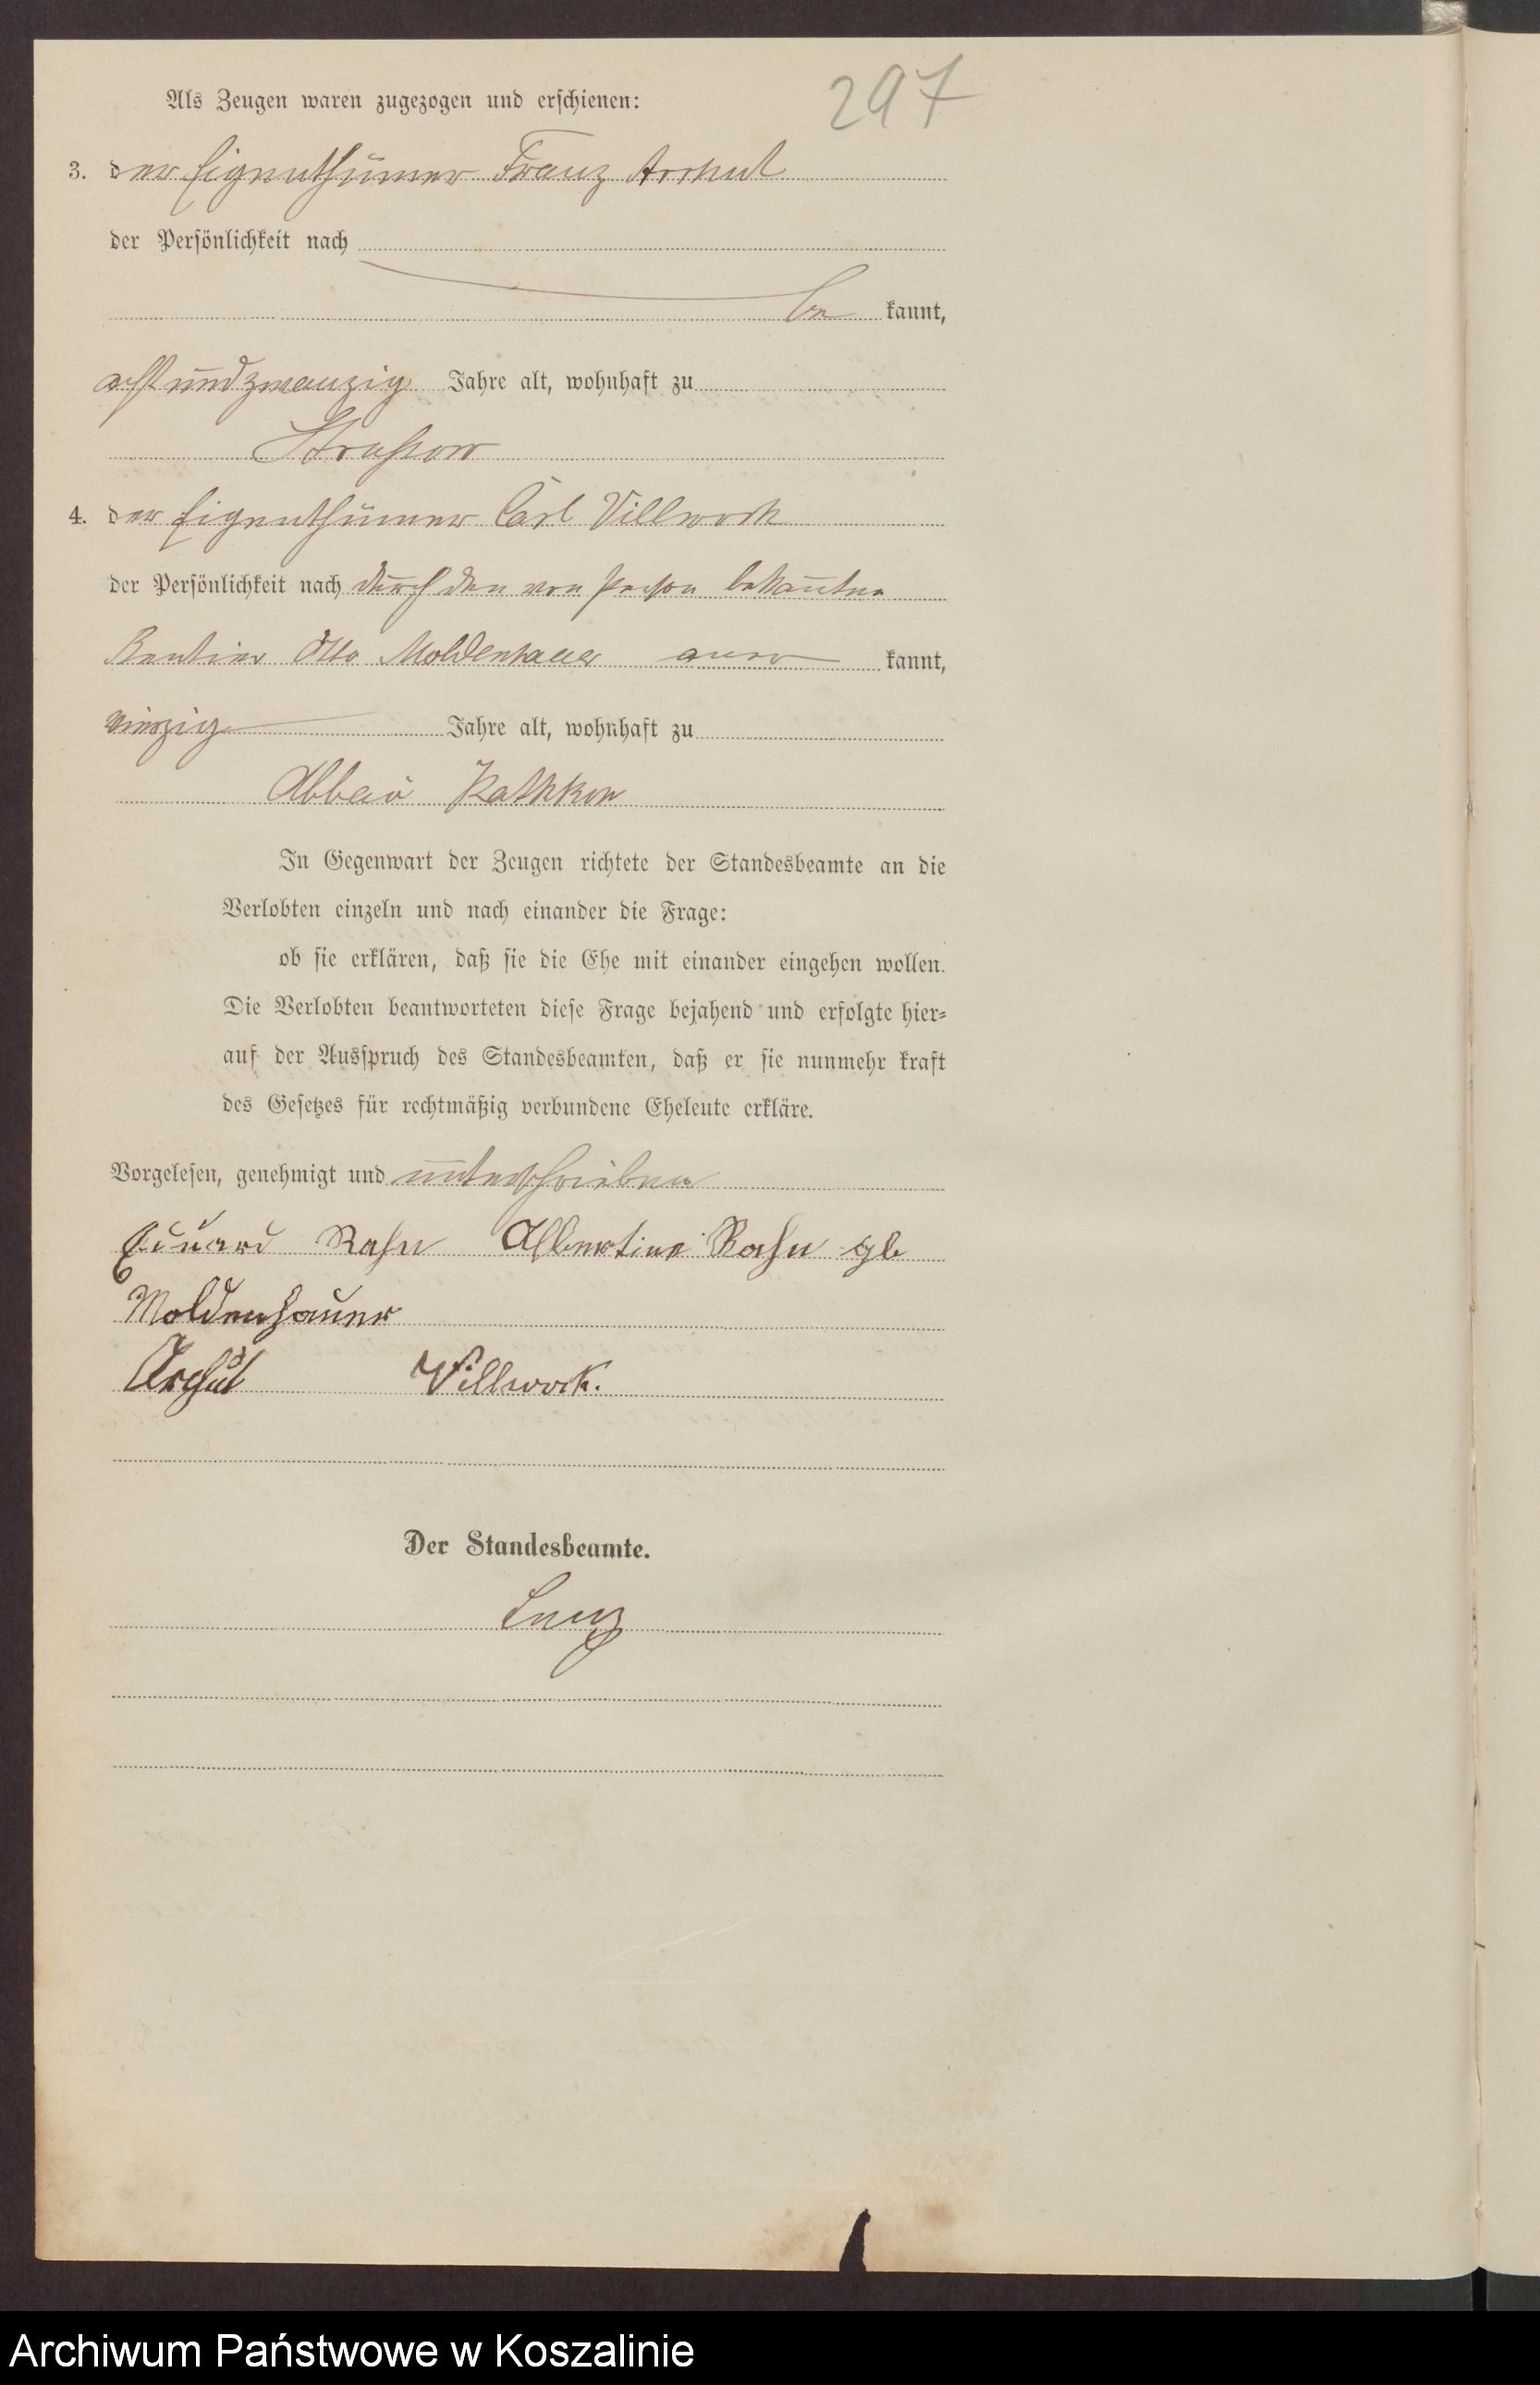 297
Als Zeugen waren zugezogen und erschienen:
3. der Eigenthümer Franz Archut
der Persönlichkeit nach
be kannt,
acht und zwanzig Jahre alt, wohnhaft zu
4. der Eigenthümer Carl Villwock
der Persönlichkeit nach durch den von Person bekannten
Rentier Otto Moldenhauer aner kannt,
vierzig Jahre alt, wohnhaft zu
Abbau
In Gegenwart der Zeugen richtete der Standesbeamte an die
Verlobten einzeln und nach einander die Frage:
ob sie erklären, daß sie die Ehe mit einander eingehen wollen.
Die Verlobten beantworteten diese Frage bejahend und erfolgte hier=
auf der Ausspruch des Standesbeamten, daß er sie nunmehr kraft
des Gesetzes für rechtmäßig verbundene Eheleute erkläre.
Vorgelesen, genehmigt und unterschrieben
Eduard Rahn Albertine Rahn gb
Moldenhauer
Archut Villwock.
Der Standesbeamte.
Lenz
Archiwum Państwowe w Koszalinie